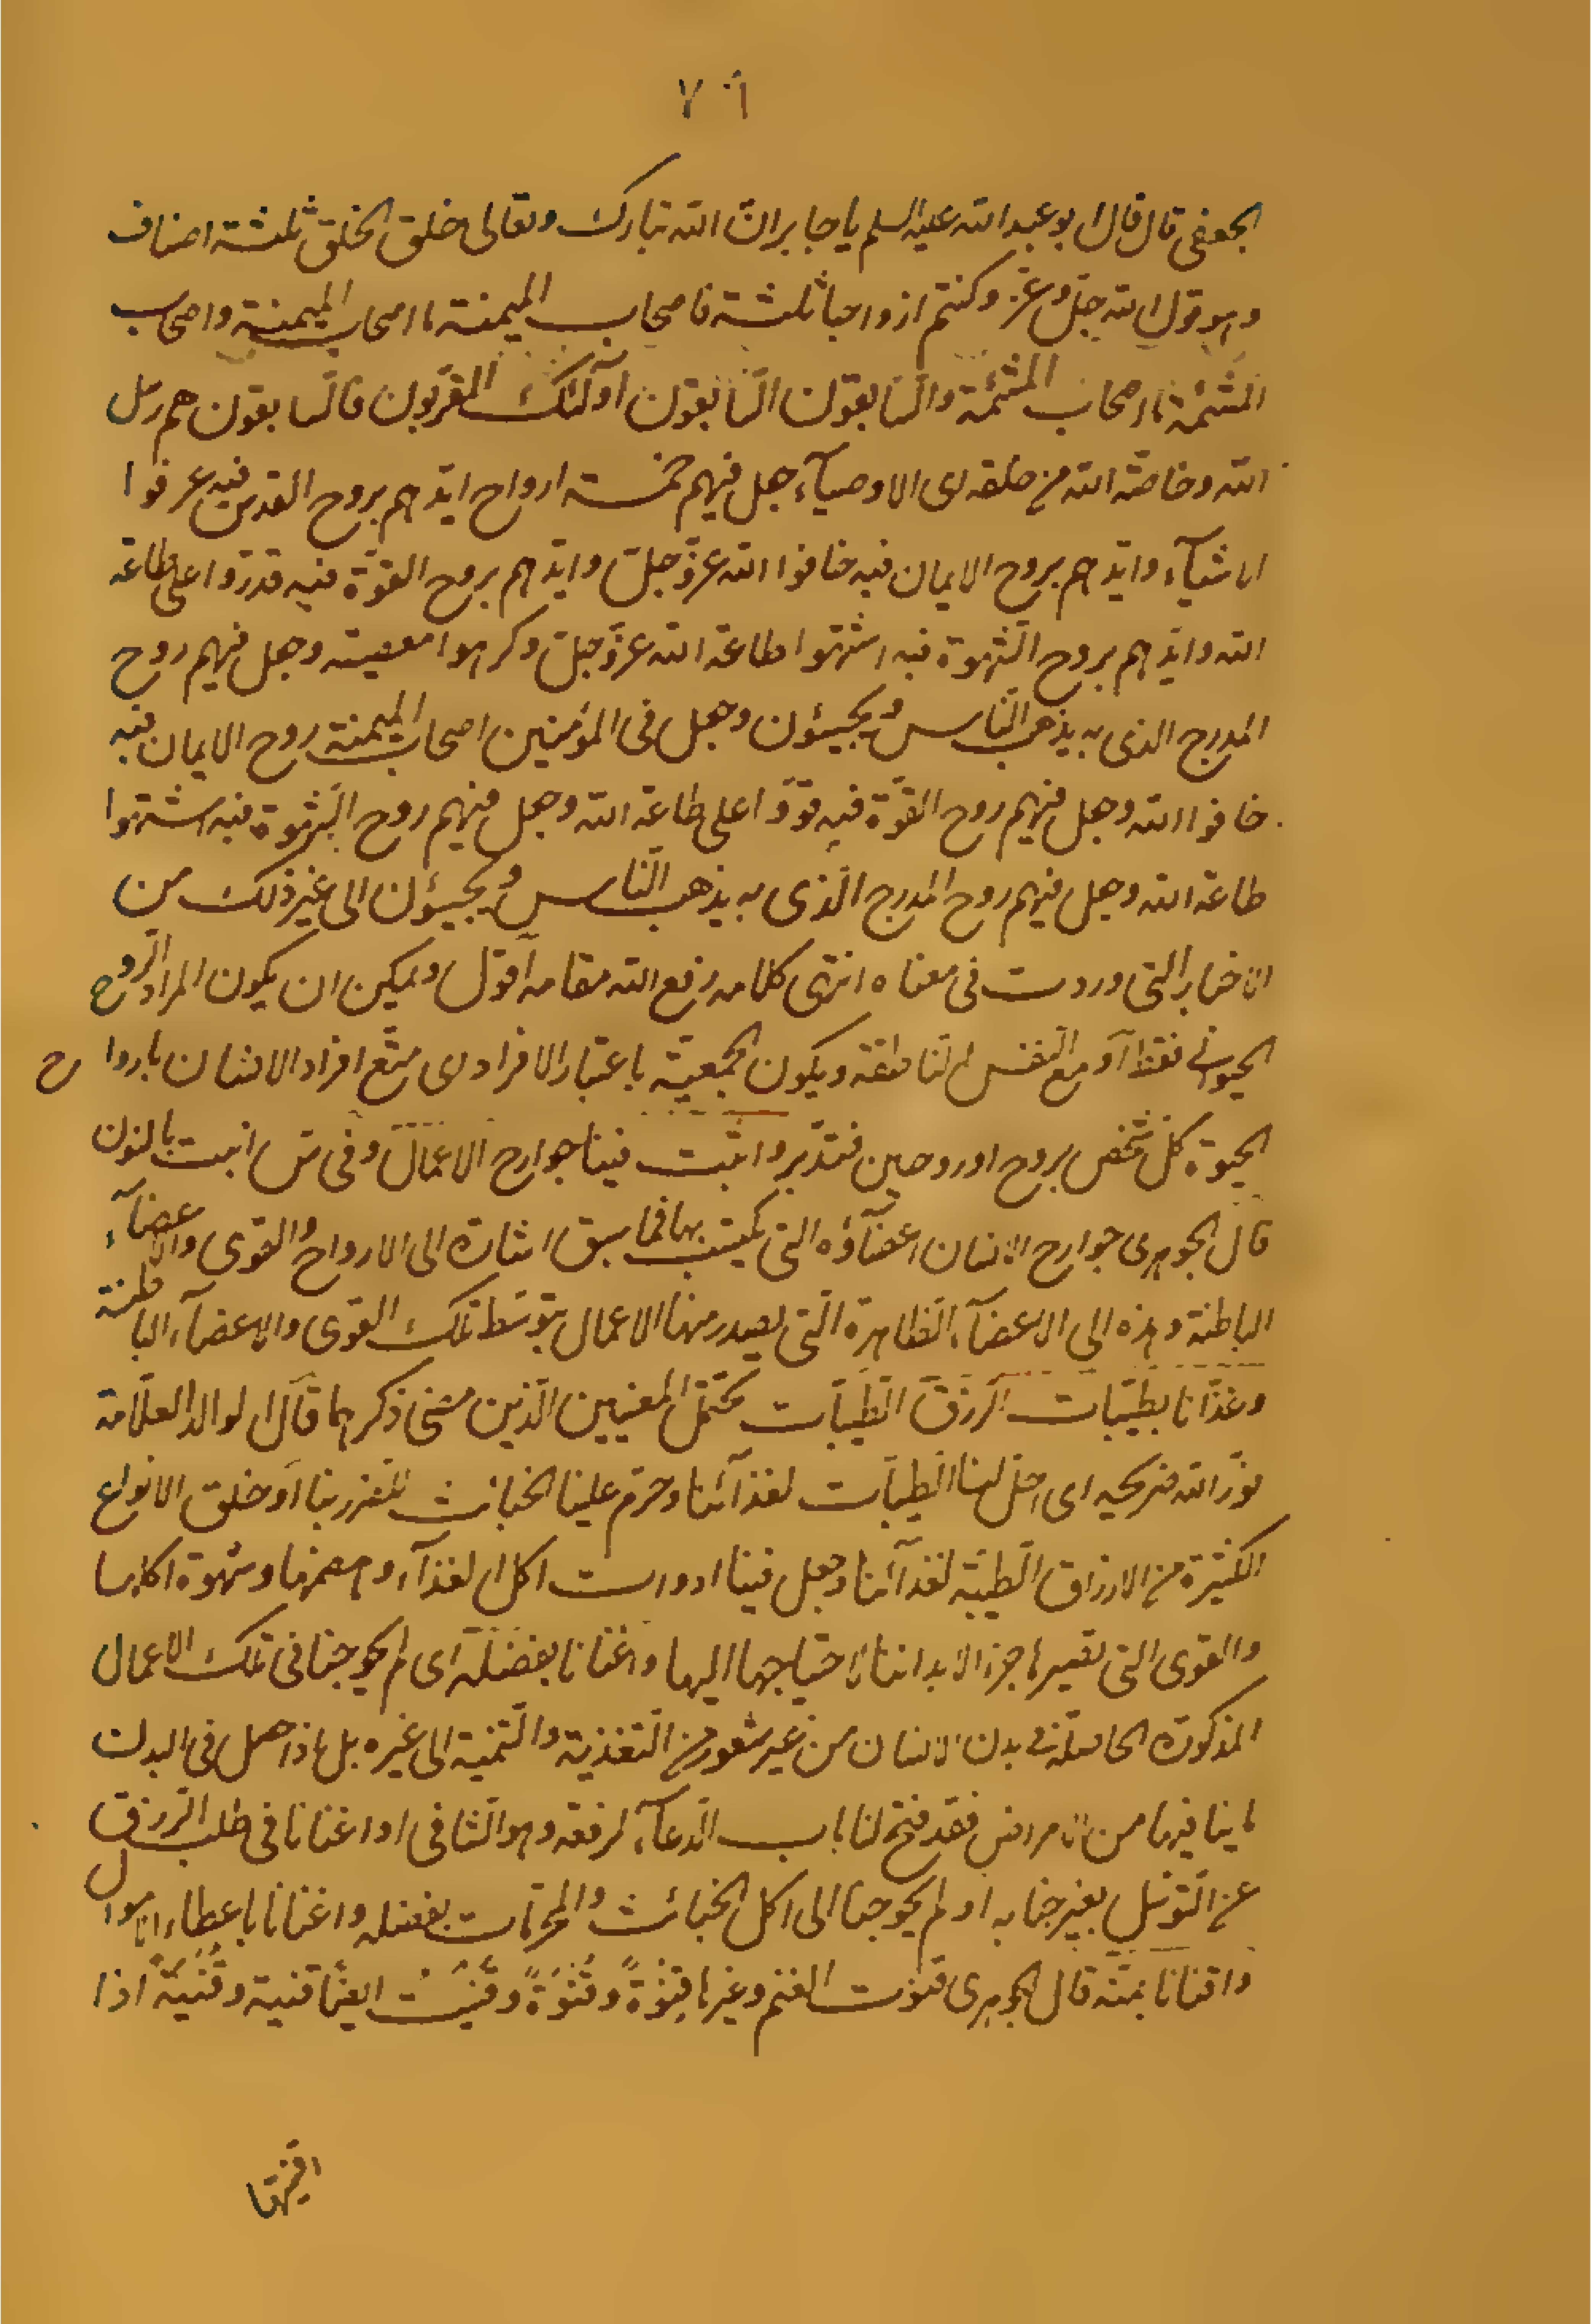 ٧٦
الجعفی قال قال ابو عبد الله علیه السلم یا جابر انّ الله تبارک وتعالی خلق الخلق ثلثة اصناف
وهو قول الله جلّ وعزّ وکنتم ازواجا ثلثة فاصحاب المیمنة ما اصحاب المیمنة واصحاب
المشئمة ما اصحاب المشئمة والسّابقون السّابقون اولئک المقرّبون فالسّابقون هم رسل
الله وخاصّة الله من خلقه ای الاوصیآء جعل فیهم خمسة ارواح ایّدهم بروح القدس فبه عرفوا
الاشیآء وایّدهم بروح الایمان فبه خافوا الله عزّ وجلّ وایّدهم بروح القوّة فبه قدروا علی طاعة
الله وایّدهم بروح الشّهوة فبه اشتهوا طاعة الله عزّ وجلّ وکرهوا معصیته وجعل فیهم روح
المدرج الذی به یذهب النّاس ویجیئون وجعل فی المؤمنین اصحاب المیمنة روح الایمان فبه
خافوا الله وجعل فیهم روح القوّة فبه قووا علی طاعة الله وجعل فیهم روح الشّهوة فبه اشتهوا
طاعة الله وجعل فیهم روح المدرج الّذی به یذهب النّاس ویجیئون الی غیر ذلک من
الاخبار التی وردت فی معناه انتهی کلامه رفع الله مقامه اقول ویمکن ان یکون المراد الرّوح
الحیوانی فقط او مع النّفس النّاطقة ویکون الجمعیّة باعتبار الافراد ای متّع افراد الانسان بارواح
الحیوة کلّ شخص بروح او روحین فتدبّر واثبت فینا جوارح الاعمال وفی س انبت بالنون
قال الجوهری جوارح الانسان اعضآؤه التی یکتسب بها فما سبق اشارة الی الارواح والقوی والاعضآء
الباطنة وهذه الی الاعضآء الظّاهرة الّتی یصدر منها الاعمال بتوسّط تلک القوی والاعضآء الباطنة
وغذّانا بطیّبات الرّزق الطّیّبات یحتمل المعنیین الّذین مضی ذکرهما قال الوالد العلّامة
نوّر الله ضریحه ای احلّ لنا الطّیّبات لغذآئنا وحرّم علینا الخبائث لتضرّرنا او خلق الانواع
الکثیرة من الارزاق الطّیّبة لغذآئنا وجعل فینا ادوات اکل الغذآء وهضمها وشهوة اکلها
والقوی التی تصیرها جزء الابداننا لاحتیاجها الیها واغنانا بفضله ای لم یحوجنا فی تلک الاعمال
المذکورة الحاصلة فی بدن الانسان من غیر شعور من التغذیة والتّنمیة الی غیره بل اذا حصل فی البدن
ما ینافیها من الامراض فقد فتح لنا باب الدّعآء لرفعه وهو الشّافی او اغنانا فی طلب الرّزق
عن التّوسّل بغیر جنابه او لم یحوجنا الی اکل الخبائث والمحرّمات بفضله واغنانا باعطاء الاموال
واقنانا بمنّه قال الجوهری قنوت الغنم وغیرها قِنْوَةً وقُنْوَةً وقَنَیْتُ ایضًا قنیة وقُنیَةً اذا
اقتنیتها